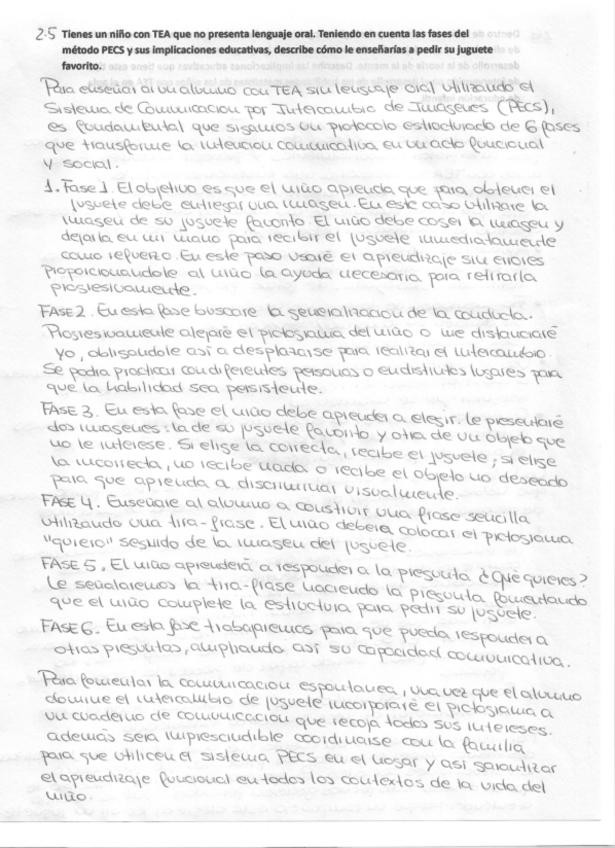 2.5 Tienes un niño con TEA que no presenta lenguaje oral. Teniendo en cuenta las fases del
método PECS y sus implicaciones educativas, describe cómo le enseñarías a pedir su juguete
favorito.
Para enseñar al un alumno con TEA sin lenguaje oral utilizando el
Sistema de Comunicación por Intercambio de Imágenes (PECS),
es fundamental que sigamos un protocolo estructurado de 6 fases
que transforme la intención comunicativa en un acto funcional
y social.
1. Fase 1. El objetivo es que el niño aprenda que para obtener el
juguete debe entregar una imagen. En este caso utilizaré la
imagen de su juguete favorito. El niño debe coger la imagen y
dejarla en mi mano para recibir el juguete inmediatamente
como refuerzo. En este paso usaré el aprendizaje sin errores
proporcionandole al niño la ayuda necesaria para retirarla
progresivamente.
FASE 2. En esta fase buscaré la generalización de la conducta.
Progresivamente alejaré el pictograma del niño o me distanciaré
yo, obligandole así a desplazarse para realizar el intercambio.
Se podrá practicar con diferentes personas o en distintos lugares para
que la habilidad sea persistente.
FASE 3. En esta fase el niño debe aprender a elegir. Le presentaré
dos imágenes: la de su juguete favorito y otra de un objeto que
no le interese. Si elige la correcta, recibe el juguete; si elige
la incorrecta, no recibe nada o recibe el objeto no deseado
para que aprenda a discriminar visualmente.
FASE 4. Enseñaré al alumno a construir una frase sencilla
utilizando una tira-frase. El niño deberá colocar el pictograma
"quiero" seguido de la imagen del juguete.
FASE 5. El niño aprenderá a responder a la pregunta ¿Qué quieres?
Le señalaremos la tira-frase haciendo la pregunta fomentando
que el niño complete la estructura para pedir su juguete.
FASE 6. En esta fase trabajaremos para que pueda responder a
otras preguntas, ampliando así su capacidad comunicativa.
Para fomentar la comunicación espontanea, una vez que el alumno
domine el intercambio de juguete incorporaré el pictograma a
un cuaderno de comunicación que recoja todos sus intereses.
además será imprescindible coordinarse con la familia
para que utilicen el sistema PECS en el hogar y así garantizar
el aprendizaje funcional en todos los contextos de la vida del
niño.